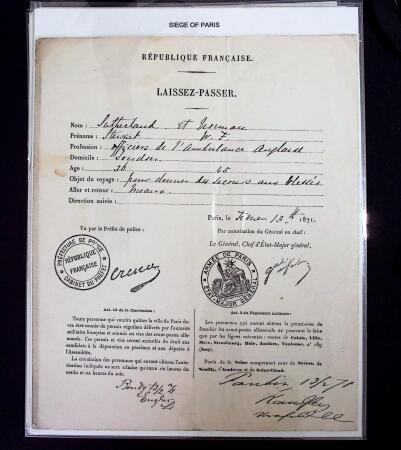 SIEGE OF PARIS
RÉPUBLIQUE FRANÇAISE.
LAISSEZ-PASSER.
Nom : Sutherland et Norman
Prénoms : Stewart W. F.
Profession : officiers de l'Ambulance Anglaise
Domicile : Londres
Age : 30 45
Objet du voyage : pour donner des secours aux blessés
Aller et retour : Meaux.
Direction suivie :
Paris, Février 13th 1871.
Vu par le Préfet de police :
Par autorisation du Général en chef :
Le Général, Chef d'État-Major général,
PRÉFECTURE DE POLICE
RÉPUBLIQUE FRANÇAISE
CABINET DU PRÉFET
ARMÉE DE PARIS
ÉTAT-MAJOR GÉNÉRAL
Art. 10 de la Convention :
Toute personne qui voudra quitter la ville de Paris devra être munie de permis réguliers délivrés par l'autorité
militaire française et soumis au visa des avant-postes allemands. Ces permis et visa seront accordés de droit aux
candidats à la députation en province et aux députés à l'Assemblée.
La circulation des personnes qui auront obtenu l'autorisation indiquée ne sera admise qu'entre six heures du
matin et six heures du soir.
Art. 2 du Règlement militaire :
Les personnes qui auront obtenu la permission de franchir les avant-postes allemands ne pourront le faire
que par les lignes suivantes : routes de Calais, Lille, Metz, Strasbourg, Bâle, Antibes, Toulouse, et 189
(Issy).
Ponts de la Seine comprenant ceux de Sèvres, de Neuilly, d'Asnières et de Saint-Cloud.
Pantin 13/2 71
Bondy 13/2 71